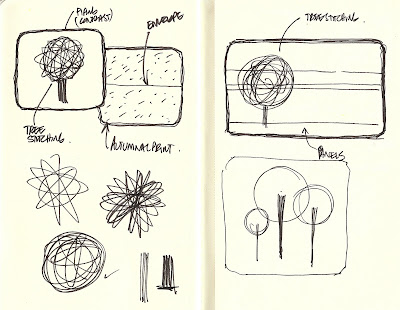 (CONTRAST)
ENVELOPE
TREE
STITCHING
AUTUMNAL PRINT.
TREE STITCHING.
PANELS